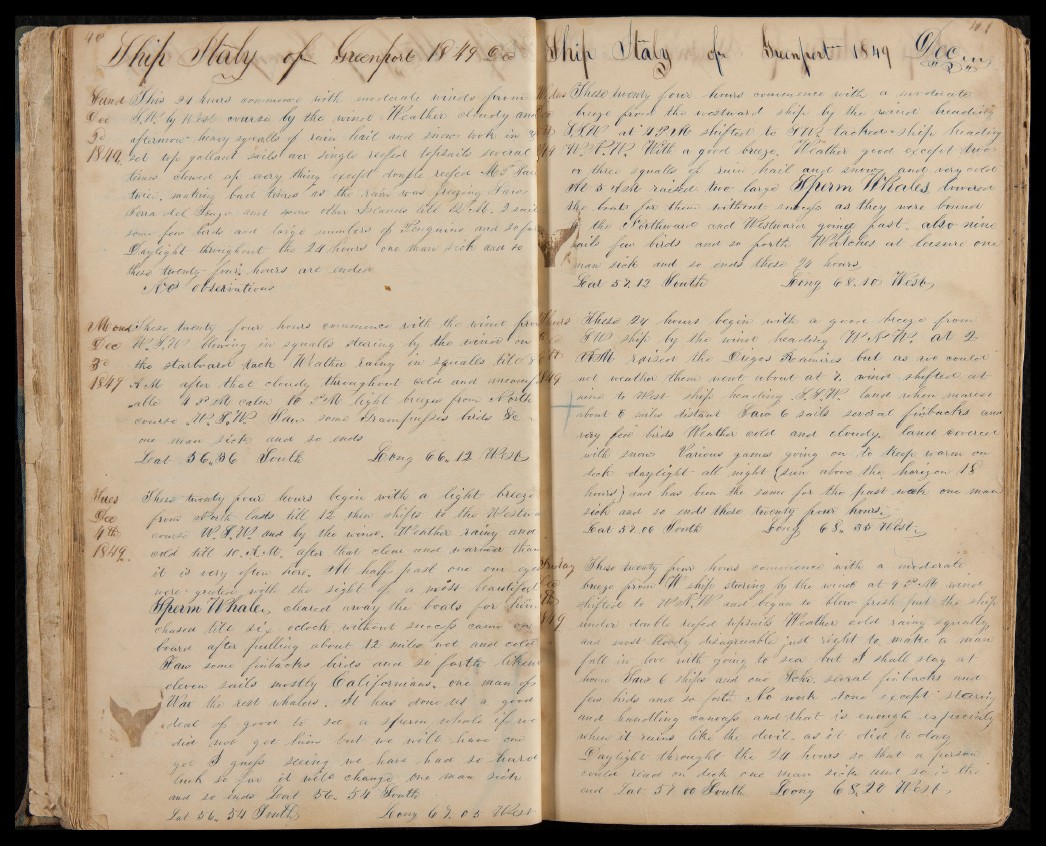 40
Ship Italy of Greenport 1849 Dec
Sund This 24 hours commence with moderate winds from
Dec S.W. by West course by the wind Weather cloudy and
2d afternoon heavy squalls of rain hail and snow took in
1849 set up gallant sails over single reefed topsails several
times clewed up every thing except double reefed M T Sail
twice. making bad times as the rain was freezing Saw
Terra del and some other Islands till 12 M. 2 sail
some few birds and large numbers of Penguins and so for
Daylight throughout the 24 hours one man sick and so
these twenty four hours are ended
No observations
Mond These twenty four hours commence with the wind from
Dec W.S.W blowing in squalls steering by the wind on
3d the starboard tack Weather rainy in squalls till 8
1849 A.M after that cloudy throughout cold and uncomf
able 4 P M calm 10 P M light breeze from North
course W.S.W. Saw some birds &c
one man sick and so ends
Lat 56.36 South Long 66.12 West
Tues These twenty four hours begin with a light breeze
Dec from North lasts till 12 then shifts to the Westw
4th course W.S.W. and by the wind. Weather rainy and
1849. cold till 10. A.M. after that clear and warmer than
it is very often here. At half past one our eyes
were greeted with the sight of a most beautiful
Sperm Whale, cleared away the boats for him
chased till six oclock without success came on
board after pulling about 12 miles wet and cold
Saw some finbacks birds and so forth
eleven sails mostly Californians, one man of
War the rest whalers. It has done us a good
deal of good to see a sperm whale if we
did not get him but we will have one
yet I guess seeing we have had so hard
luck so far it will change one man sick
and so ends Lat 56. 54 South
Lat 56. 54 South Long 67. 05 West
41
Ship Italy of Greenport 1849 Dec
Wedns These twenty four hours commence with a moderate
breeze from the westward ship by the wind heading
S.S.W at 4 P.M shifted to tacked ship heading
W.N.W. With a good breeze. Weather good except two
or three squalls of rain hail and snow and very cold
At 5 raised two large Sperm Whales lowered
the boats for them without success as they were bound
to the Northward and Westward going fast. also nine
sails few birds and so forth. Watches at leisure one
man sick and so ends these 24 hours
Lat 57.12 South Long 68.10 West
These 24 hours begin with a good breeze from
SW ship by the wind heading W N W. at 2
A M raised the Diegos Ramires but as we could
not weather them went about at 7. wind shifted at
nine to West ship heading S.S.W. land when nearest
about 8 miles distant Saw 6 sails several finbacks and
very few birds Weather cold and cloudy. land covered
with snow Various games going on to keep warm on
deck daylight all night (sun above the horizon 18
hours) and has been the same for the past week one man
sick and so ends these twenty four hours.
Lat 57.00 South Long 68. 36 West
Friday These twenty four hours commence with a moderate
breeze from W ship steering by the wind at 9 P.M wind
shifted to W.N.W and began to blow fresh put the ship
under double reefed topsails Weather cold rainy squally
and most bloody disagreeable just right to make a man
fall in love with going to sea but I shall stay at
home Saw 6 ships and one Schr. several finbacks and
few birds and so forth No work done except steering
and handling canvass and that is enough especially
when it rains like the devil as it did to day
Daylight throught the 24 hours so that a person
could read on deck one man sick and so is the
end Lat 57 00 South Long 68.20 West